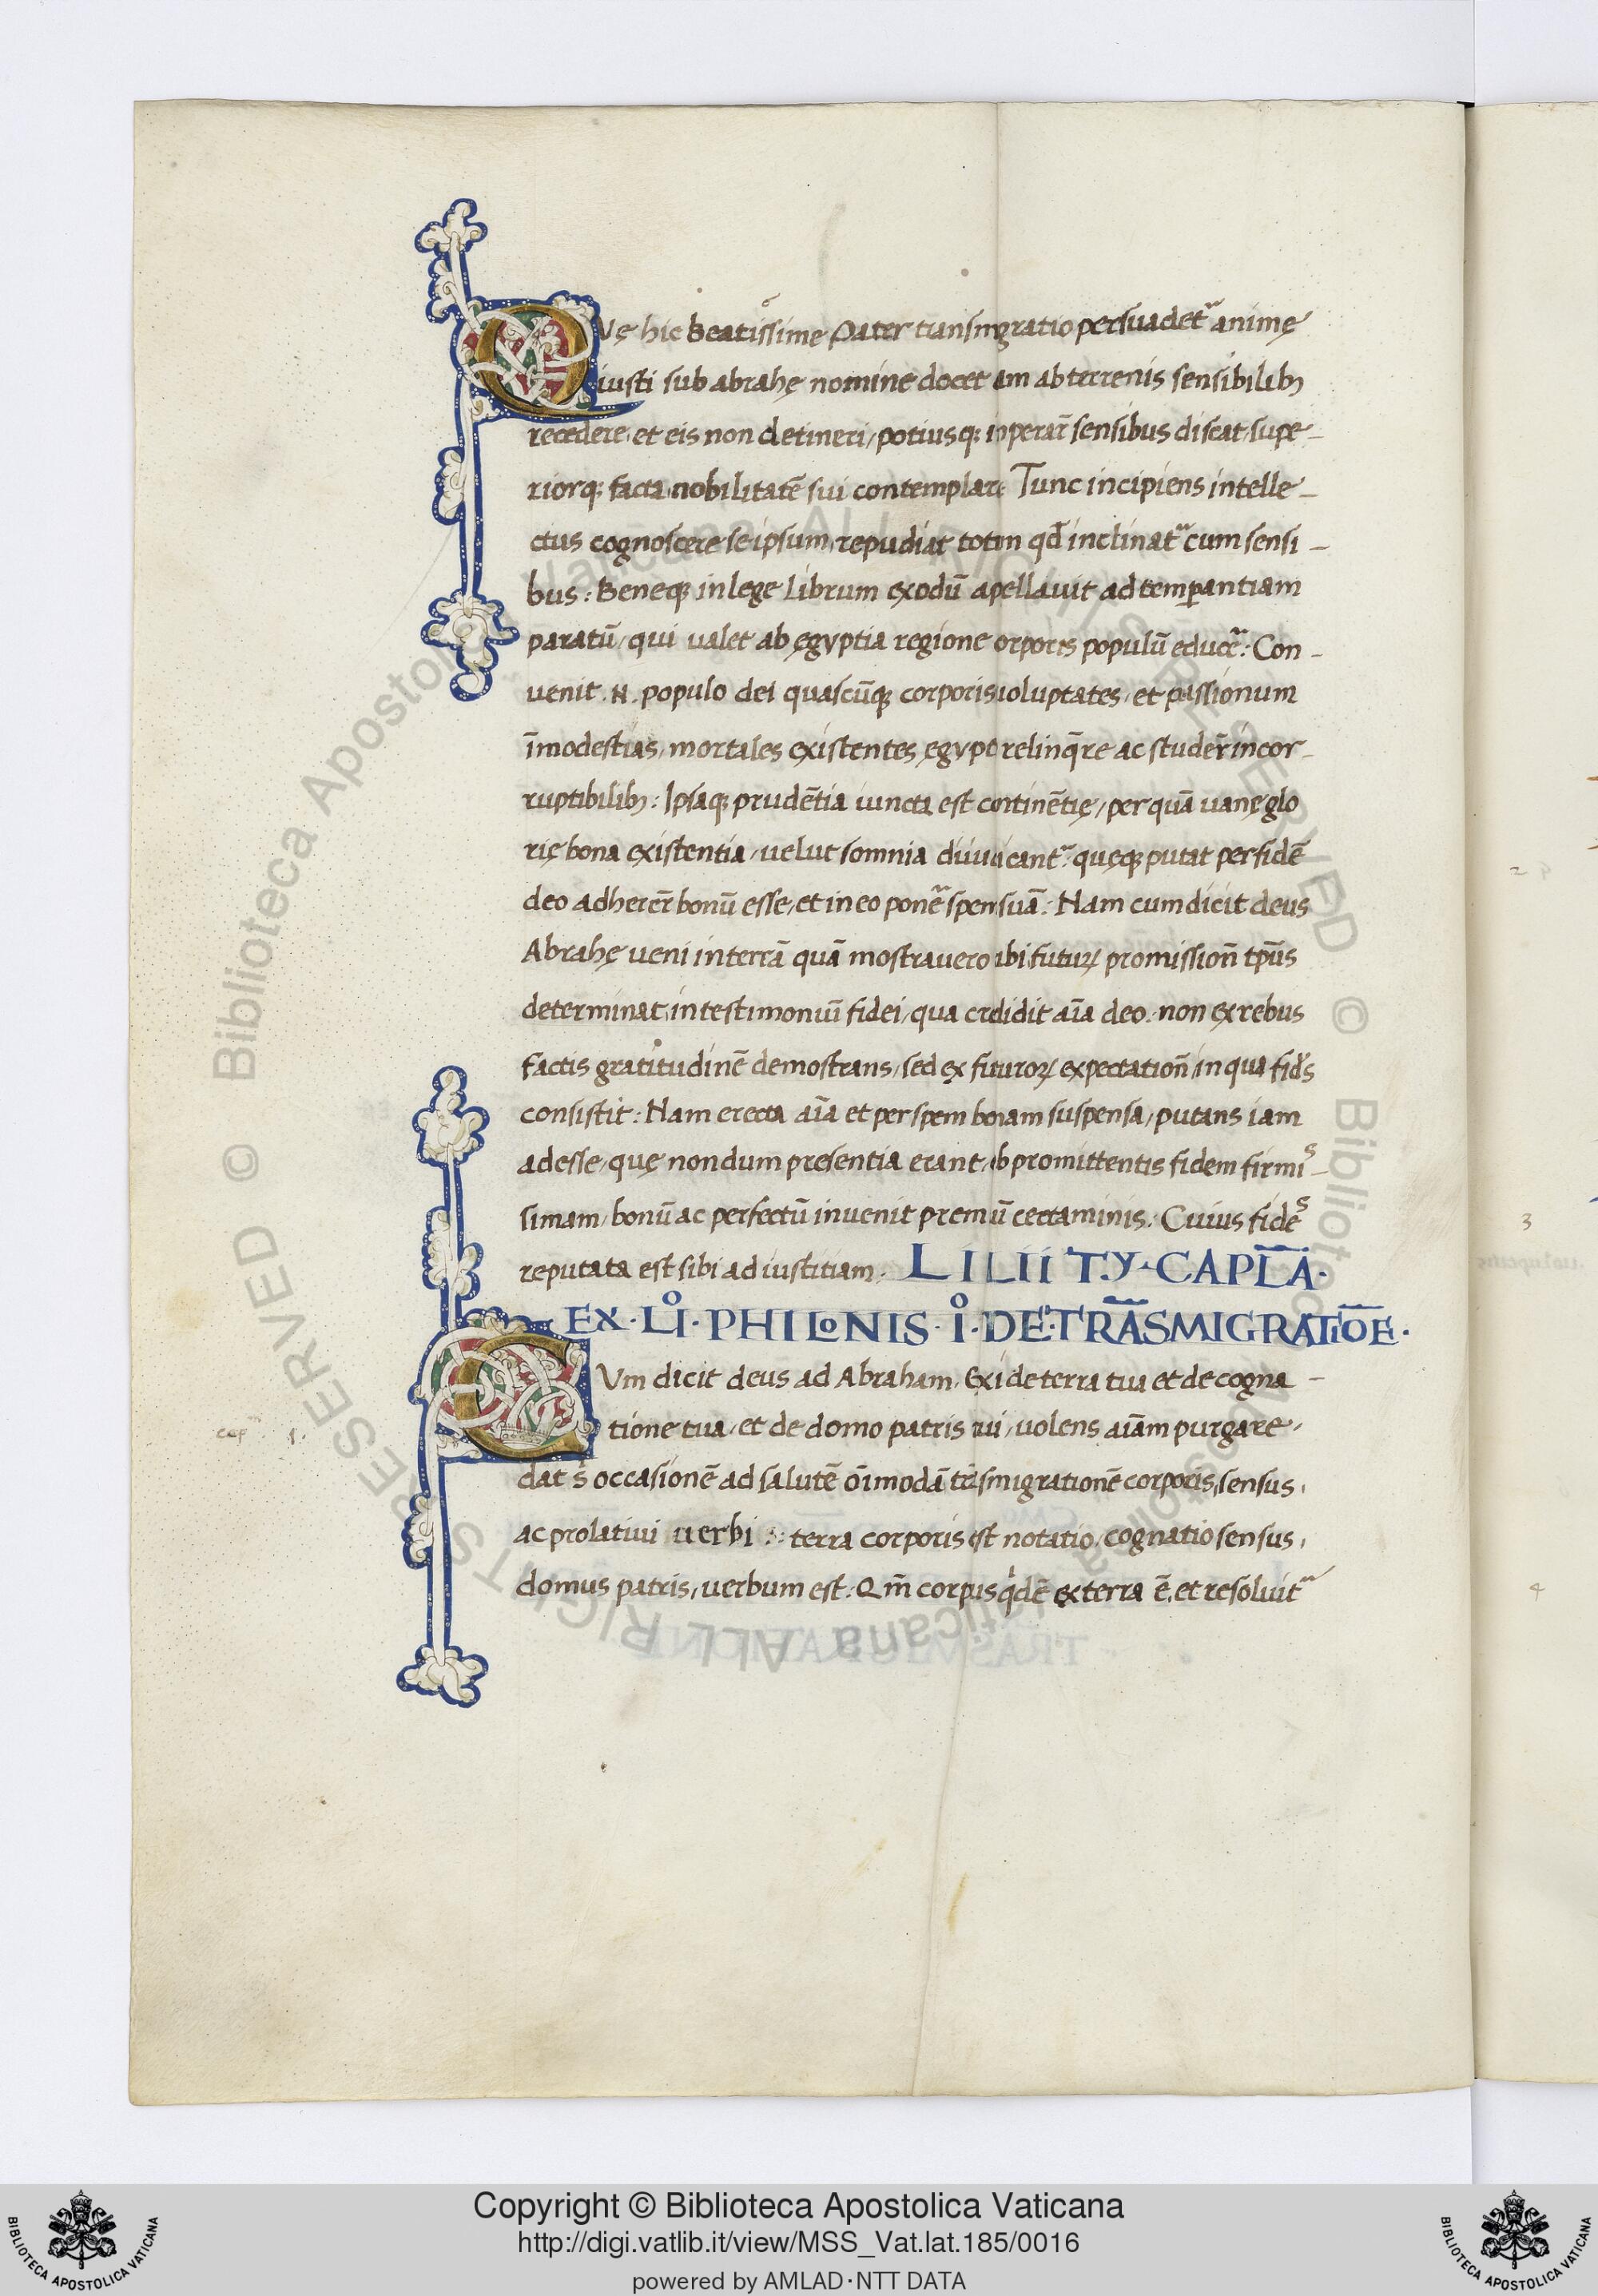 QVę hic beatissime Pater transmigratio persuadet᷑ animę
iusti sub abrahę nomine docet eam ab terrenis sensibilibꝫ
recedere, et eis non detineri, potiusqꝫ inperar̄ sensibus discat, supe-
riorqꝫ facta nobilitatē sui contemplari: Tunc incipiens intelle-
ctus cognoscere se ipsum, repudiat totum qd̄ inclinat᷑ cum sensi-
bus: Beneqꝫ in lege librum exodū apellavit ad temꝑantiam
paratū, qui valet ab ęgyptia regione corporis populū educē᷑: Con-
uenit .N. populo dei quascūqꝫ corporis uoluptates, et passionum
īmodestias, mortales existentes, ęgypto relinq̄re ac studer̄ incor-
ruptibilibꝫ: Ipsaqꝫ prudētia iuncta est continētię, per quā uanę glo
rię bona existentia, uelut somnia diiudicant᷑, quęqꝫ putat per fidē
deo adherer̄ bonū esse, et in eo ponē᷑ spem suā: Nam cum dicit deus
Abrahę ueni in terrā quā mostrauero tibi, futurꝝ promissioñ tp̄us
determinat, in testimoniuī fidei, qua credidit aīa deo: non ex rebus
factis gratitudinē demostrans, sed ex futurorꝝ expectatioñ, in qua fides
consistit: Nam erecta aīa et per spem bonam suspensa, putans iam
adesse, quę nondum presentia erant, ob promittentis fidem firmis-
simam, bonū ac perfectū inuenit premiū certaminis: Cuius fides
reputata est sibi ad iustitiam. LILII T.Y. CAPL̄A.
EX. LꝈI. PHILONIS. I. DE. TRĀSMIGRATIŌE.
CVm dicit deus ad Abraham. Exi de terra tua et de cogna-
tione tua, et de domo patris tui, uolens aīam purgare,
dat s̄ occasionē ad salutē oīmodā trāsmigrationē corporis, sensus,
ac prolatiui uerbi: terra corporis est notatio, cognatio sensus,
domus patris, uerbum est: Qm̄ corpus qͥdē ex terra ē, et resoluit᷑
cap. 1.
2
3
4
Copyright © Biblioteca Apostolica Vaticana
http://digi.vatlib.it/view/MSS_Vat.lat.185/0016
powered by AMLAD·NTT DATA
BIBLIOTECA APOSTOLICA VATICANA
BIBLIOTECA APOSTOLICA VATICANA